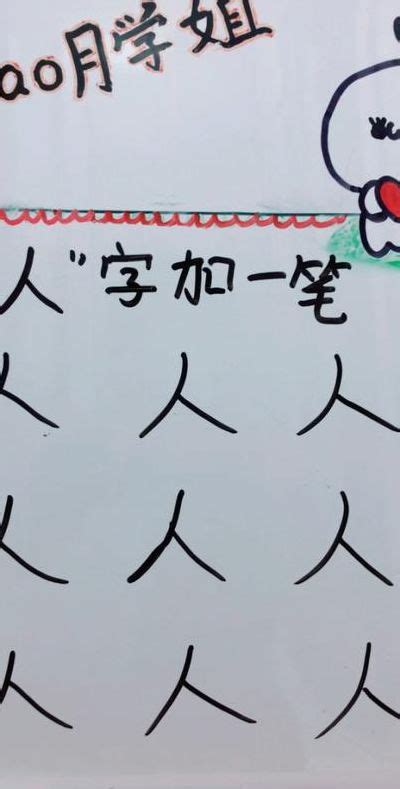 ao月学姐
人"字加一笔
人 人 人
人 人 人
人 人 人